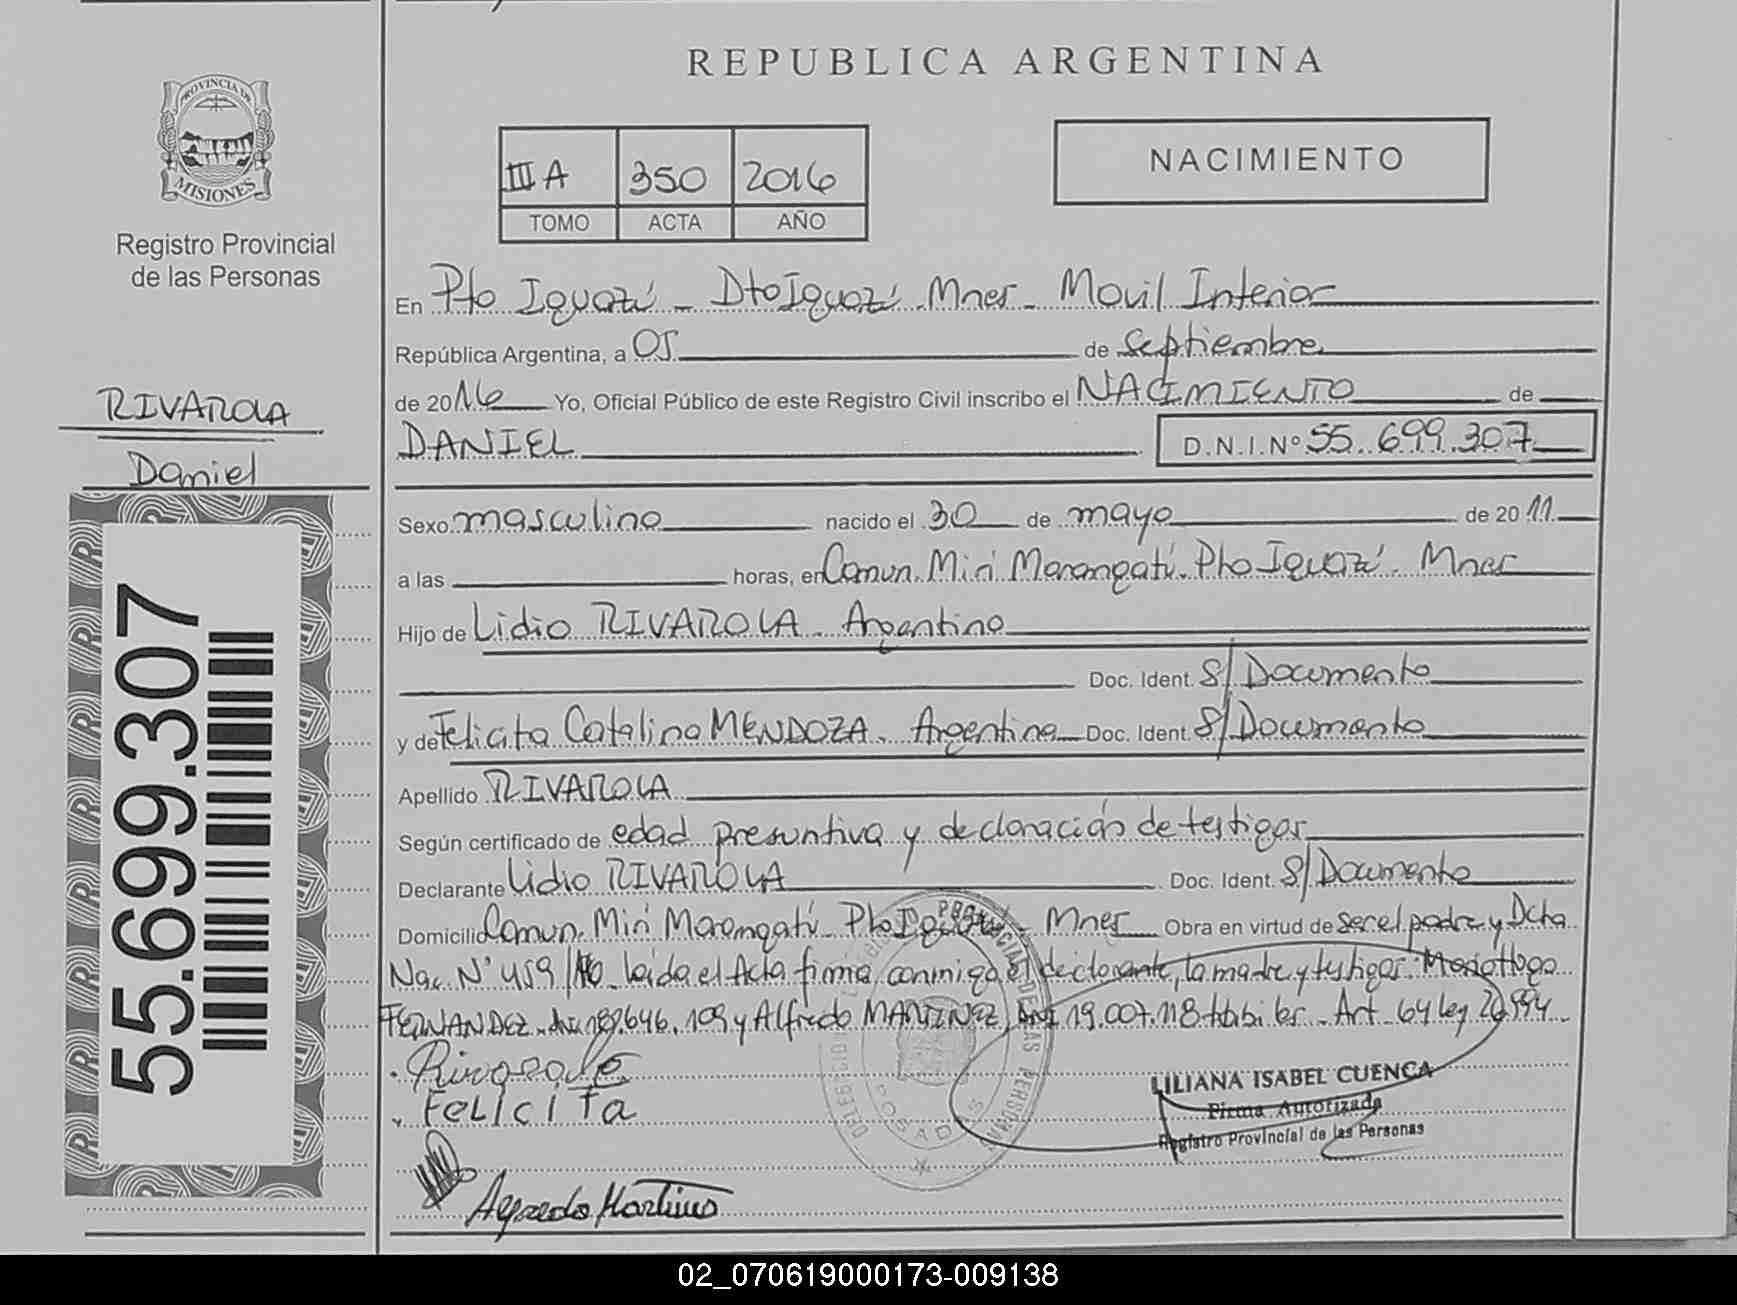 REPUBLICA ARGENTINA
PROVINCIA DE
MISIONES
Registro Provincial
de las Personas
III A 350 2016
TOMO ACTA AÑO
NACIMIENTO
En Pto Iguazú - Dto Iguazú. Mnes - Movil Interior
República Argentina, a 05 de Septiembre
de 2016 Yo, Oficial Público de este Registro Civil inscribo el NACIMIENTO de
RIVAROLA
Daniel
DANIEL D.N.I.Nº 55.699.307
Sexo masculino nacido el 30 de mayo de 2011
a las horas, en Comun. Miri Marangatú. Pto Iguazú. Mnes
Hijo de Lidio RIVAROLA. Argentino
Doc. Ident. S/ Documento
y de Felicita Catalina MENDOZA. Argentina Doc. Ident. S/ Documento
Apellido RIVAROLA
Según certificado de edad presuntiva y declaración de testigos
Declarante Lidio RIVAROLA Doc. Ident. S/ Documento
Domicilio Comun. Miri Marangatú Pto Iguazú - Mnes Obra en virtud de ser el padre y Dcha
Nac. Nº 459/16 leida el Acta firma conmigo el declarante, la madre y testigos: Hugo
FERNANDEZ y Alfredo MARTINEZ, DNI 19.007.118 habiles - Art. 64 Ley 26.994
Felicita
LILIANA ISABEL CUENCA
Firma Autorizada
Registro Provincial de las Personas
Alfredo Martines
55.699.307
POSADAS
02_070619000173-009138